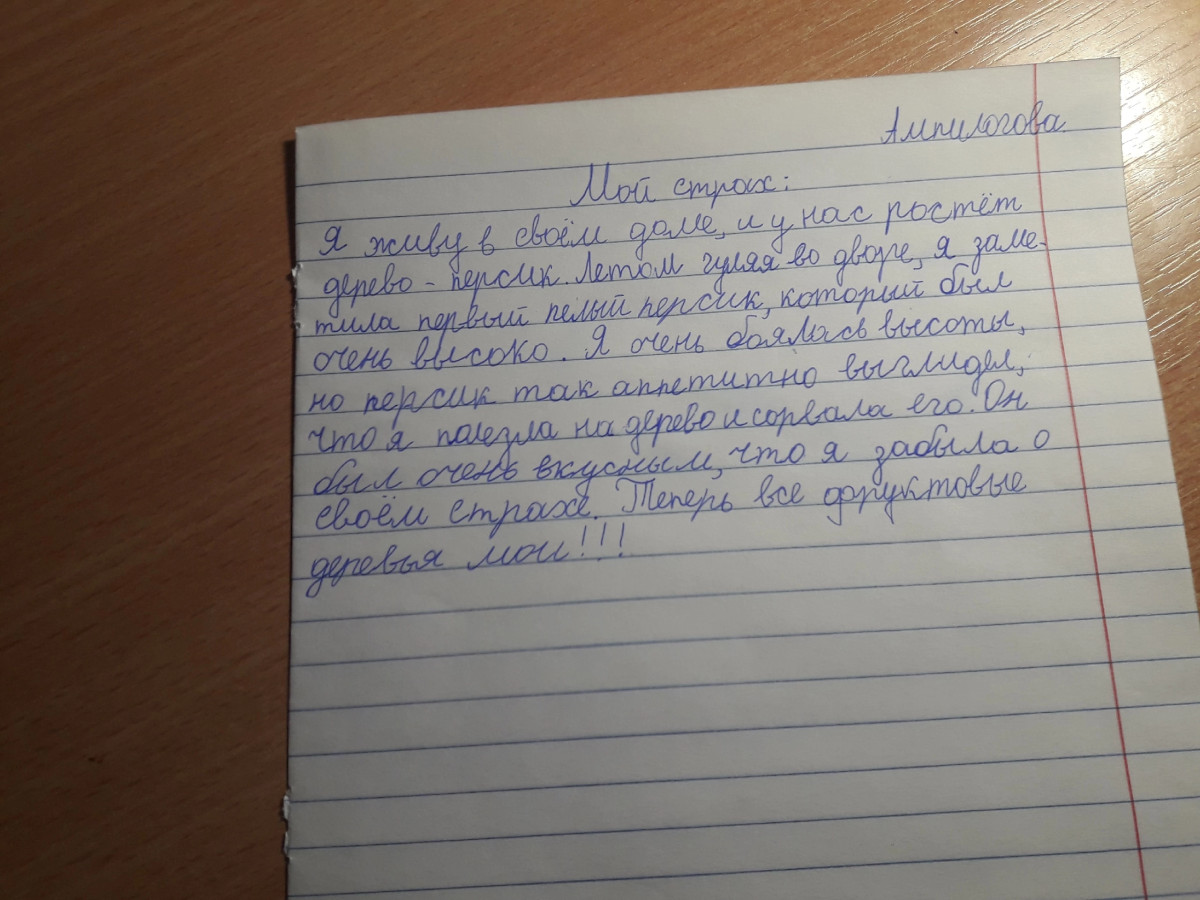 Ампилогова
Мой страх:
Я живу в своём доме, и у нас ростёт
дерево - персик. Летом гуляя во дворе, я заме-
тила первый пелый персик, который был
очень высоко. Я очень боялась высоты,
но персик так аппетитно выглидел,
что я полезла на дерево и сорвала его. Он
был очень вкусным, что я забыла о
своём страхе. Теперь все фруктовые
деревья мои!!!